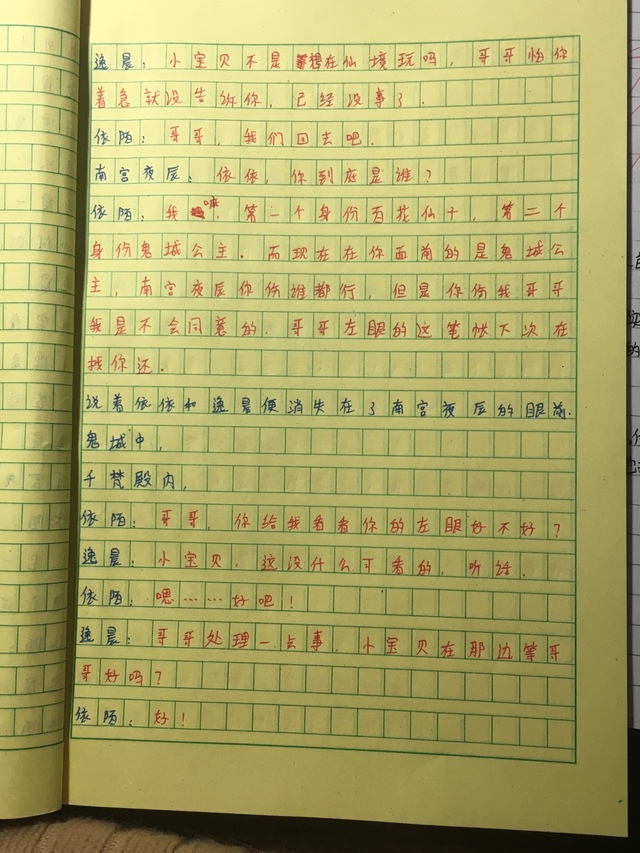 逸晨：小宝贝不是想在仙境玩吗，哥哥怕你
着急就没告诉你，已经没事了.
依陌：哥哥，我们回去吧.
南宫夜辰：依依，你到底是谁？
依陌：我嘛，第一个身份百花仙子，第二个
身份鬼城公主.而现在在你面前的是鬼城公
主，南宫夜辰你伤谁都行，但是你伤我哥哥
我是不会同意的.哥哥左眼的这笔帐下次在
找你还.
说着依依和逸晨便消失在了南宫夜辰的眼前.
鬼城中，
千梵殿内，
依陌：哥哥，你给我看看你的左眼好不好？
逸晨：小宝贝，这没什么可看的，听话.
依陌：嗯……好吧！
逸晨：哥哥处理一点事，小宝贝在那边等哥
哥好吗？
依陌：好！